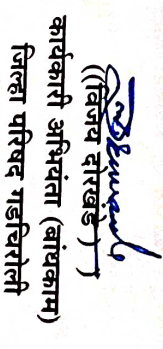 ((विजय दोरखंडे))
कार्यकारी अभियंता (बांधकाम)
जिल्हा परिषद गडचिरोली